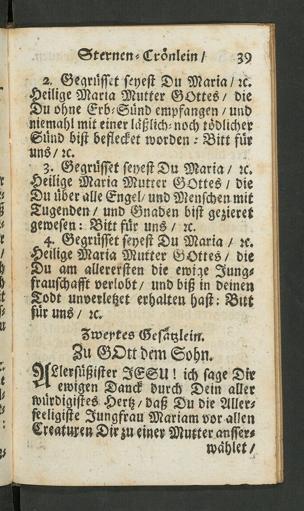 Sternen-Crönlein / 39
2. Gegrüsset seyest Du Maria / ꝛc.
Heilige Maria Mutter GOttes / die
Du ohne Erb-Sünd empfangen / und
niemahl mit einer läßlich-noch tödlicher
Sünd bist beflecket worden : Bitt für
uns / ꝛc.
3. Gegrüsset seyest Du Maria / ꝛc.
Heilige Maria Mutter GOttes / die
Du über alle Engel / und Menschen mit
Tugenden / und Gnaden bist gezieret
gewesen : Bitt für uns / ꝛc.
4. Gegrüsset seyest Du Maria / ꝛc.
Heilige Maria Mutter GOttes / die
Du am allerersten die ewige Jung-
frauschafft verlobt / und biß in deinen
Todt unverletzet erhalten hast : Bitt
für uns / ꝛc.
Zweytes Gesätzlein.
Zu GOtt dem Sohn.
ALlersüßister JESU ! ich sage Dir
ewigen Danck durch Dein aller
würdigistes Hertz / daß Du die Aller-
seeligiste Jungfrau Mariam vor allen
Creaturen Dir zu einer Mutter ausser-
wählet /